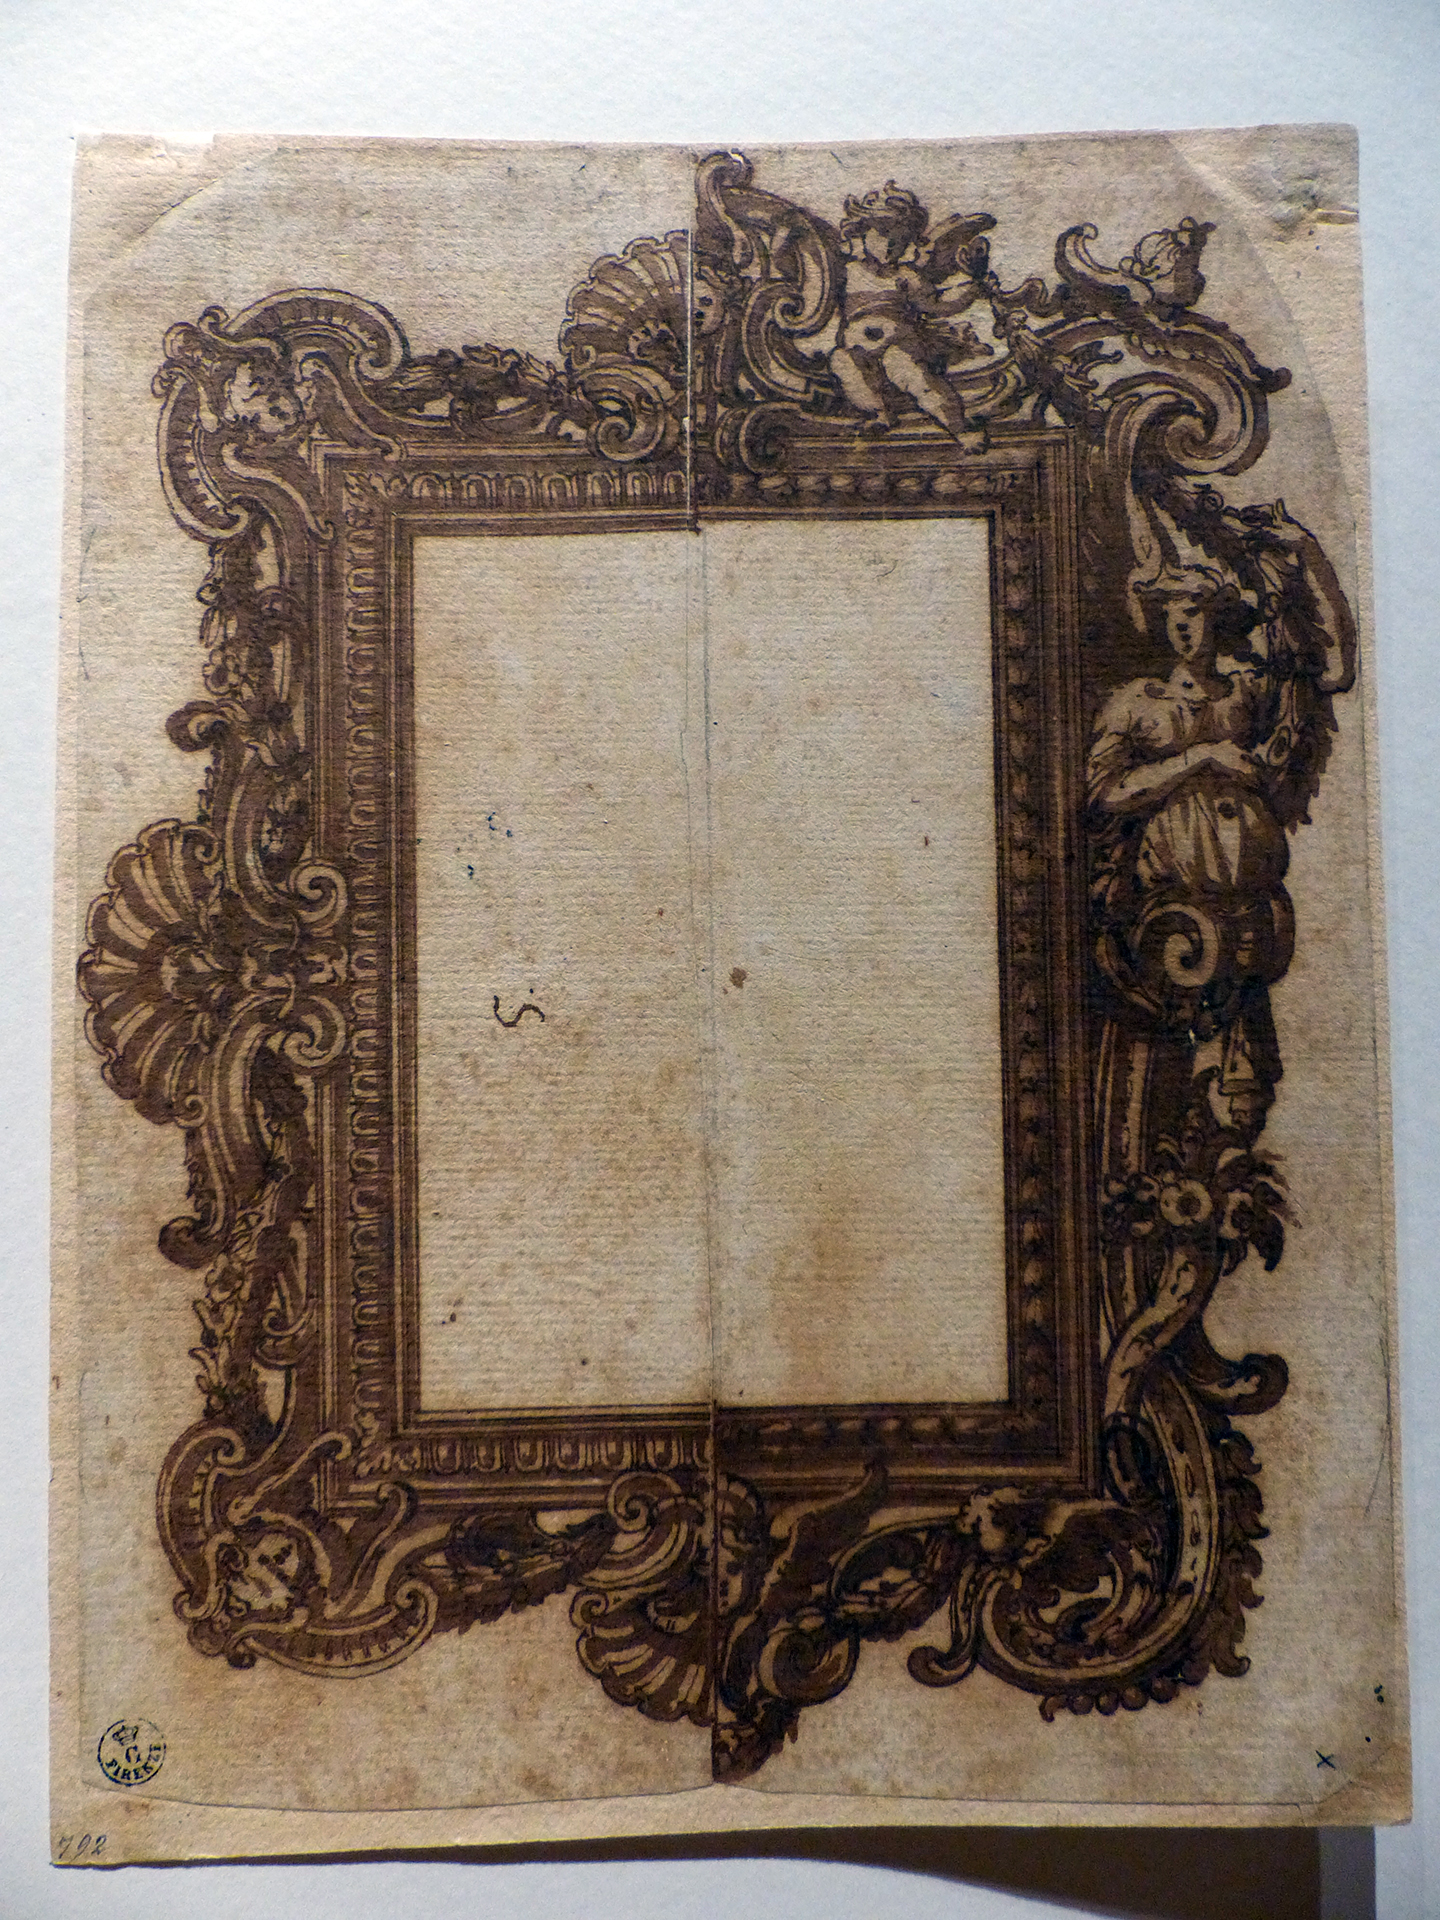 5.
G
FIRENZE
x
792